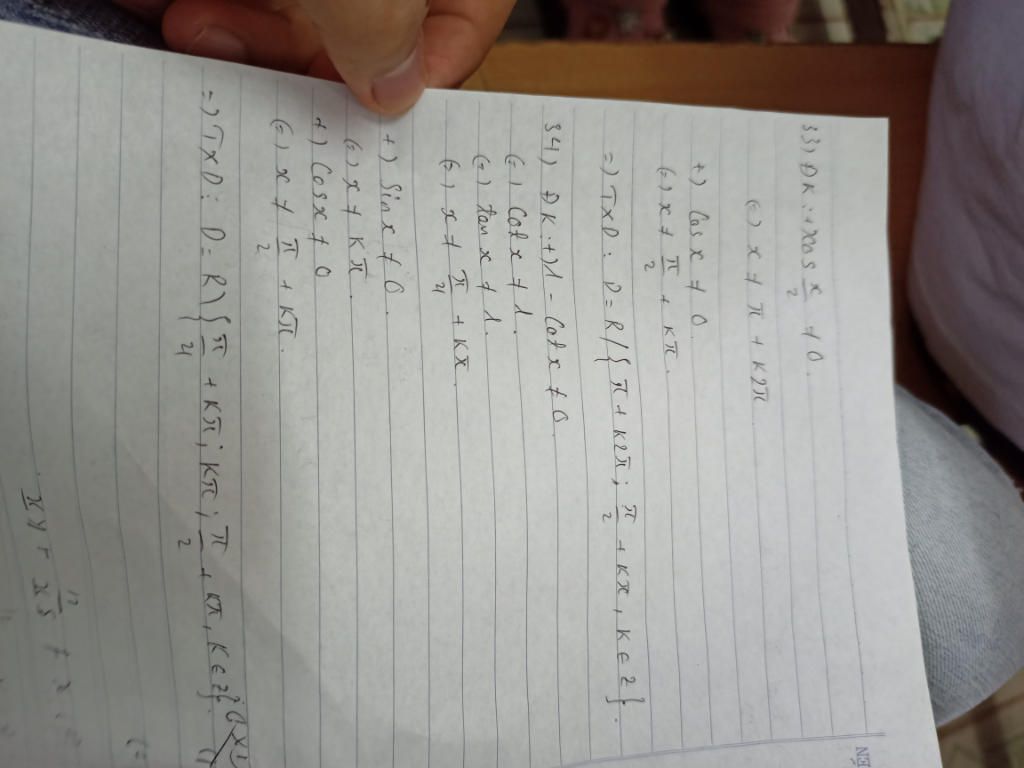 33) ĐK: +) cos x/2 ≠ 0.
(=) x ≠ π + k2π
+) Cos x ≠ 0.
(=) x ≠ π/2 + kπ.
=) TXD: D = R / { π + k2π ; π/2 + kπ, k ∈ Z }.
34) ĐK: +) 1 - Cot x ≠ 0.
(=) Cot x ≠ 1.
(=) tan x ≠ 1.
(=) x ≠ π/4 + kπ.
+) Sin x ≠ 0.
(=) x ≠ kπ.
+) Cos x ≠ 0
(=) x ≠ π/2 + kπ.
=) TXD: D = R \ { π/4 + kπ ; kπ ; π/2 + kπ, k ∈ Z }.